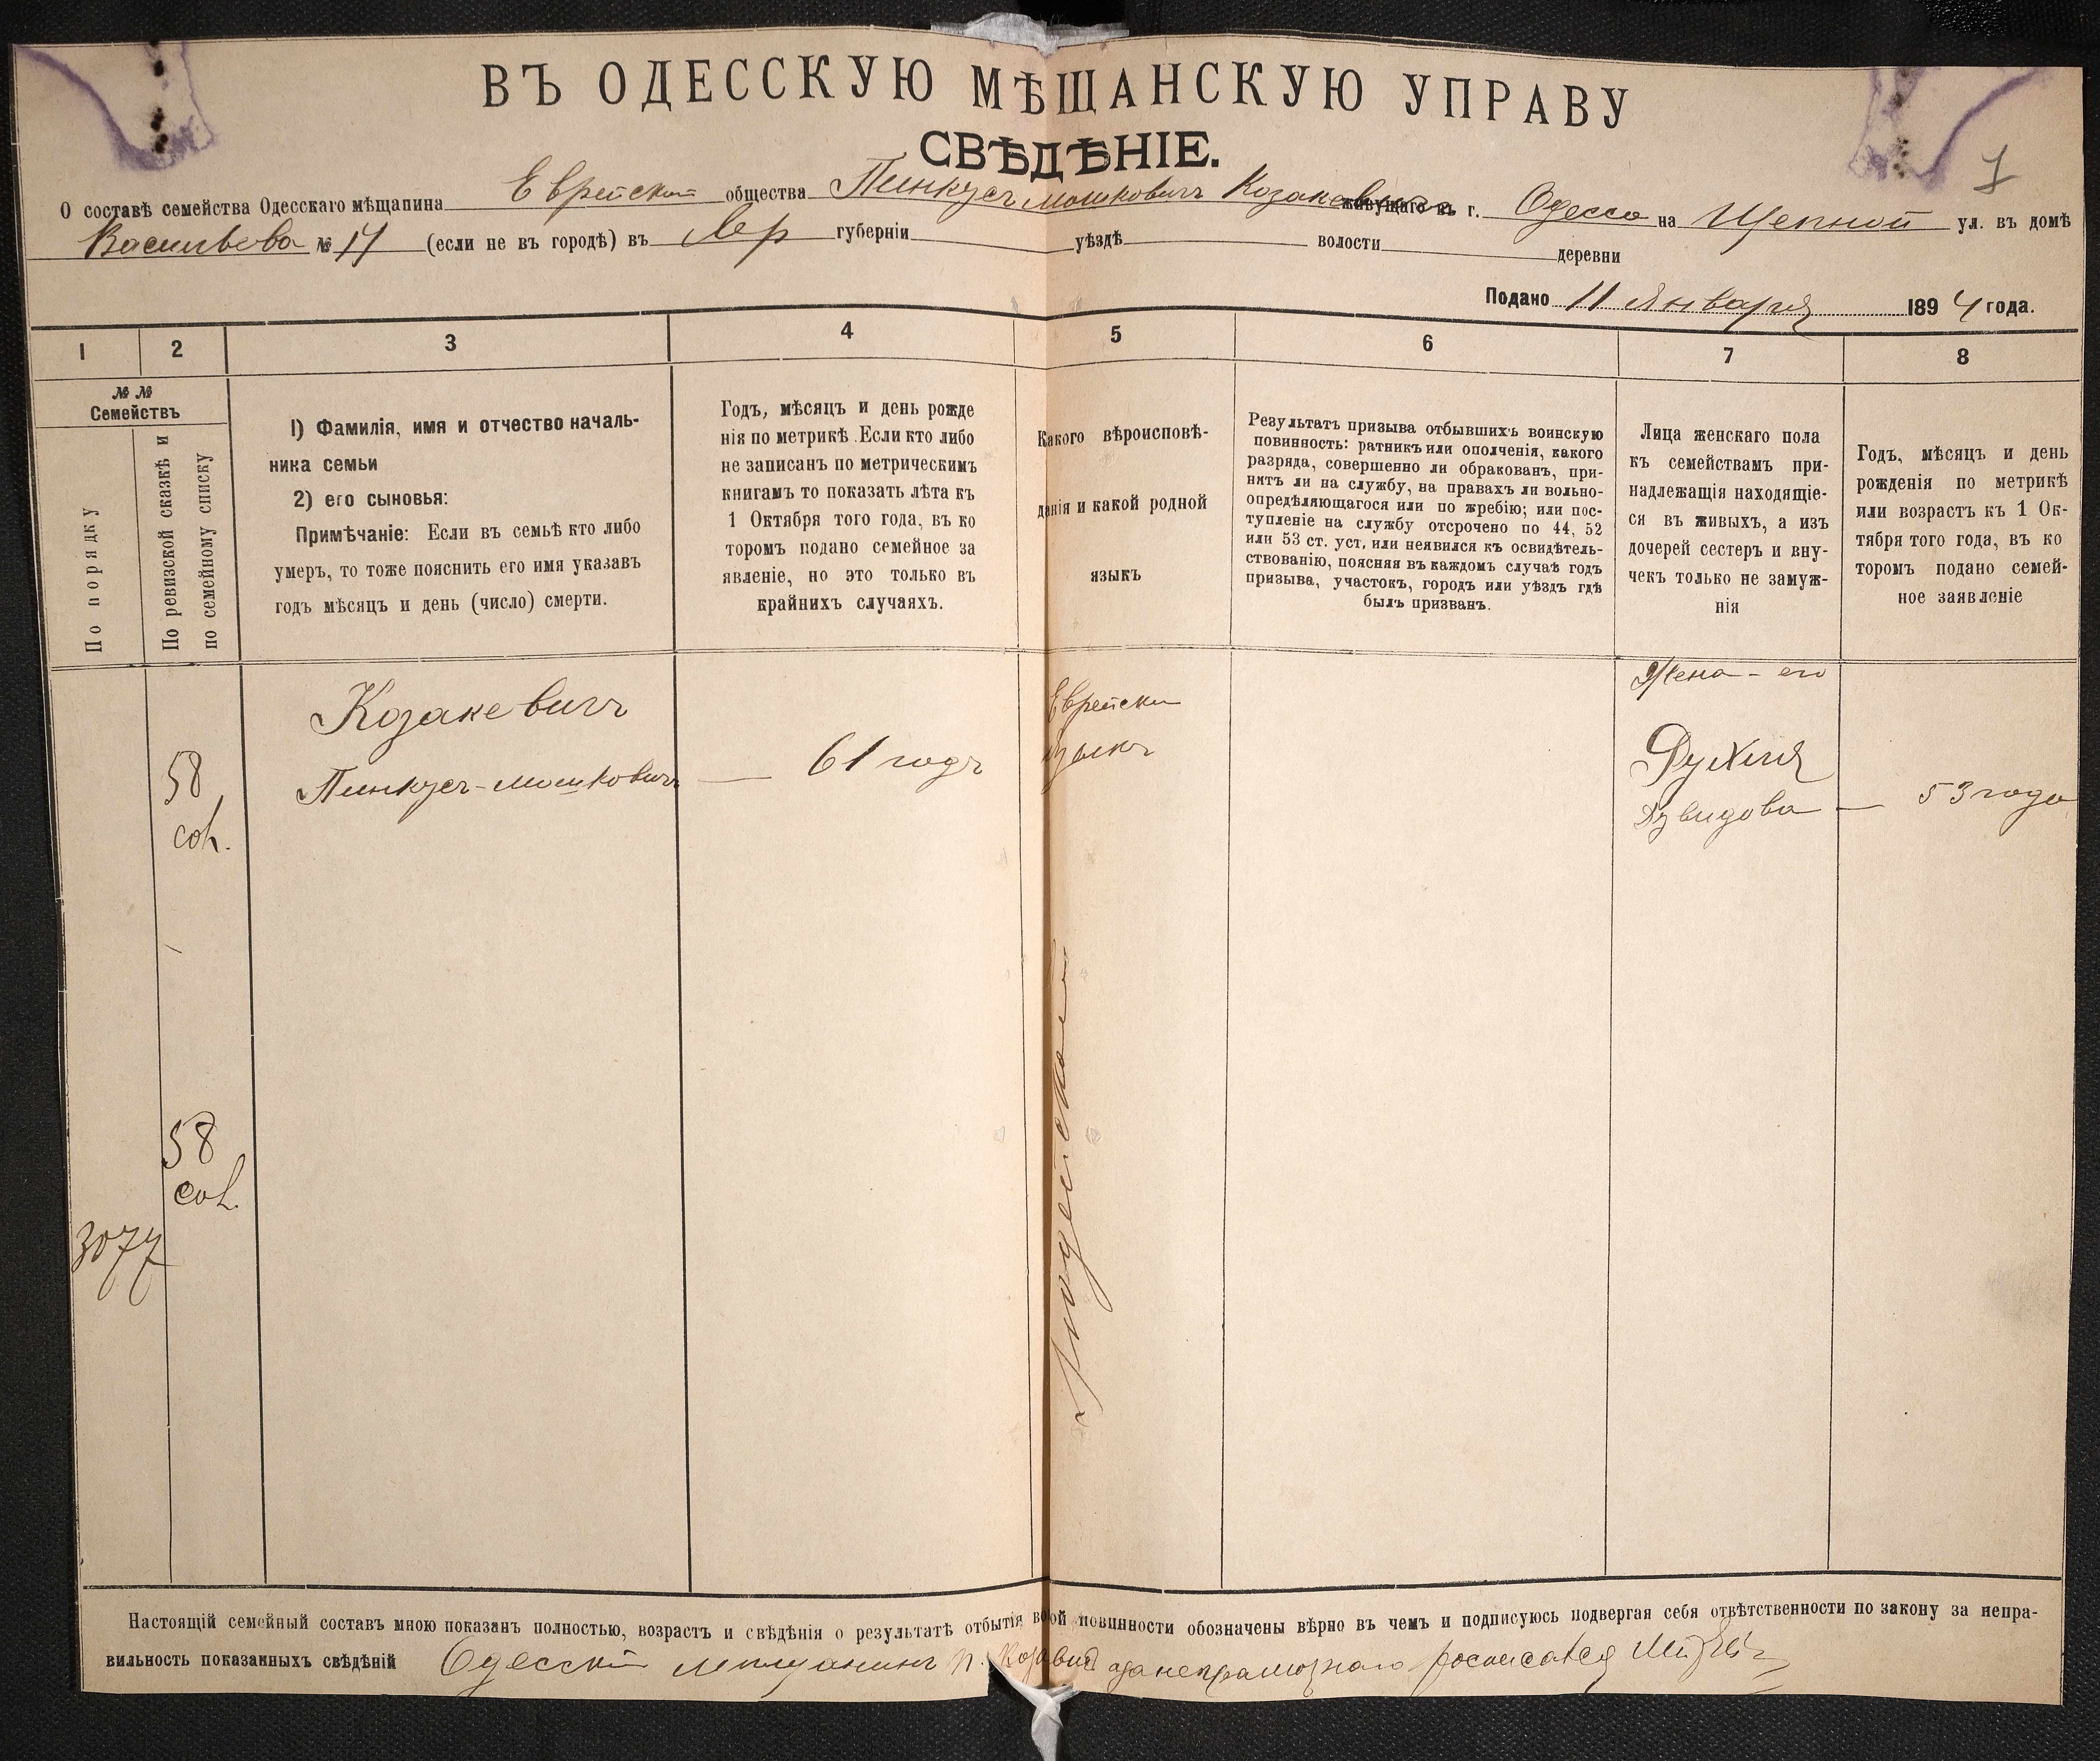 ВЪ ОДЕССКУЮ МѢЩАНСКУЮ УПРАВУ
СВѢДѢНІЕ.
1
О составѣ семейства Одесскаго мѣщанина Еврейской общества Пинкусъ Мошковичъ Козакевичъ живущаго въ г. Одессѣ на Щепной ул. въ домѣ
Васильева № 14 (если не въ городѣ) въ Хер губерніи уѣздѣ волости деревни
Подано 11 Января 1894 года.
1 2 3 4 5 6 7 8
№ №
Семействъ
По порядку
По ревизской сказкѣ и
по семейному списку
1) Фамилія, имя и отчество началь-
ника семьи
2) его сыновья:
Примѣчаніе: Если въ семьѣ кто либо
умеръ, то тоже пояснить его имя указавъ
годъ мѣсяцъ и день (число) смерти.
Годъ, мѣсяцъ и день рожде
нія по метрикѣ. Если кто либо
не записанъ по метрическимъ
книгамъ то показать лѣта къ
1 Октября того года, въ ко
торомъ подано семейное за
явленіе, но это только въ
крайнихъ случаяхъ.
Какого вѣроисповѣ-
данія и какой родной
языкъ
Результатъ призыва отбывшихъ воинскую
повинность: ратникъ или ополченія, какого
разряда, совершенно ли обракованъ, при-
нятъ ли на службу, на правахъ ли вольно-
опредѣляющагося или по жребію; или пос-
тупленіе на службу отсрочено по 44, 52
или 53 ст. уст, или неявился къ освидѣтель-
ствованію, поясняя въ каждомъ случаѣ годъ
призыва, участокъ, городъ или уѣздъ гдѣ
былъ призванъ.
Лица женскаго пола
къ семействамъ при-
надлежащія находящіе-
ся въ живыхъ, а изъ
дочерей сестеръ и вну-
чекъ только не замуж-
нія
Годъ, мѣсяцъ и день
рожденія по метрикѣ
или возрастъ къ 1 Ок-
тября того года, въ ко
торомъ подано семей-
ное заявленіе
58
Козакевичъ
Пинкусъ-Мошковичъ — 61 годъ
Еврейски
языкъ
Жена - его
Рухля
Давидова — 53 года
Іюдейскаго
58
3077
Настоящій семейный составъ мною показанъ полностью, возрастъ и свѣдѣнія о результатѣ отбытія во ой повинности обозначены вѣрно въ чемъ и подписуюсь подвергая себя отвѣтственности по закону за непра-
вильность показанныхъ свѣдѣній Одесскій мѣщанинъ П. неграмотнаго росписался